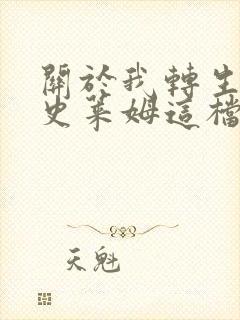 關於我轉生
史萊姆這檔
天魁